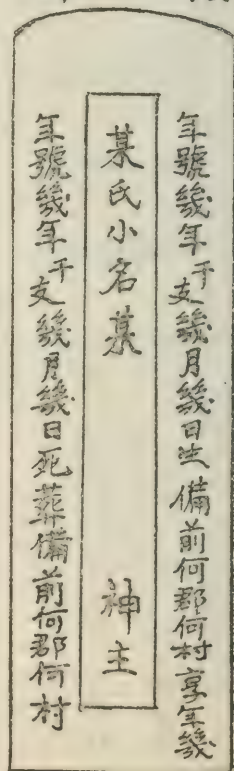 年號幾年干支幾月幾日生備前何郡何村享年幾
某氏小名某 神主
年號幾年干支幾月幾日死葬備前何郡何村